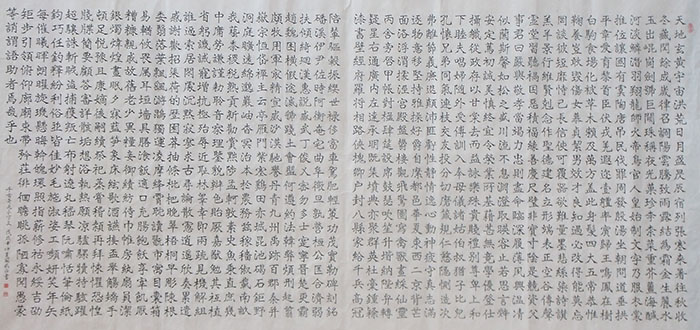 天地玄黃宇宙洪荒日月盈昃辰宿列張寒來暑往秋收
冬藏閏餘成歲律呂調陽雲騰致雨露結為霜金生麗水
玉出崑崗劍號巨闕珠稱夜光菓珍李柰菜重芥薑海鹹
河淡鱗潛羽翔龍師火帝鳥官人皇始制文字乃服衣裳
推位讓國有虞陶唐弔民伐罪周發殷湯坐朝問道垂拱
平章愛育黎首臣伏戎羌遐邇壹體率賓歸王鳴鳳在樹
白駒食場化被草木賴及萬方蓋此身髮四大五常恭惟
鞠養豈敢毀傷女慕貞潔男效才良知過必改得能莫忘
罔談彼短靡恃己長信使可覆器欲難量墨悲絲染詩讚
羔羊景行維賢克念作聖德建名立形端表正空谷傳聲
虛堂習聽禍因惡積福緣善慶尺璧非寶寸陰是競資父
事君曰嚴與敬孝當竭力忠則盡命臨深履薄夙興溫凊
似蘭斯馨如松之盛川流不息淵澄取映容止若思言辭
安定篤初誠美慎終宜令榮業所基籍甚無竟學優登仕
攝職從政存以甘棠去而益詠樂殊貴賤禮別尊卑上和
下睦夫唱婦隨外受傅訓入奉母儀諸姑伯叔猶子比兒
孔懷兄弟同氣連枝交友投分切磨箴規仁慈隱惻造次
弗離節義廉退顛沛匪虧性靜情逸心動神疲守真志滿
逐物意移堅持雅操好爵自縻都邑華夏東西二京背芒
面洛浮渭據涇宮殿盤鬱樓觀飛驚圖寫禽獸畫彩仙靈
丙舍傍啟甲帳對楹肆筵設席鼓瑟吹笙升階納陛弁轉
疑星右通廣內左達承明既集墳典亦聚群英杜稿鍾隸
漆書壁經府羅將相路俠槐卿戶封八縣家給千兵高冠
陪輦驅轂振纓世祿侈富車駕肥輕策功茂實勒碑刻銘
磻溪伊尹佐時阿衡奄宅曲阜微旦孰營桓公匡合濟弱
扶傾綺迴漢惠說感武丁俊乂密勿多士寔寧晉楚更霸
趙魏困橫假途滅虢踐土會盟何遵約法韓弊煩刑起翦
頗牧用軍最精宣威沙漠馳譽丹青九州禹跡百郡秦并
嶽宗恒岱禪主云亭雁門紫塞雞田赤城昆池碣石鉅野
洞庭曠遠綿邈巖岫杳冥治本於農務茲稼穡俶載南畝
我藝黍稷稅熟貢新勸賞黜陟孟軻敦素史魚秉直庶幾
中庸勞謙謹敕聆音察理鑑貌辨色貽厥嘉猷勉其祗植
省躬譏誡寵增抗極殆辱近恥林皋幸即兩疏見機解組
誰逼索居閒處沉默寂寥求古尋論散慮逍遙欣奏累遣
慼謝歡招渠荷的歷園莽抽條枇杷晚翠梧桐早凋陳根
委翳落葉飄颻游鵾獨運凌摩絳霄耽讀翫市寓目囊箱
易輶攸畏屬耳垣牆具膳飧飯適口充腸飽飫烹宰飢厭
糟糠親戚故舊老少異糧妾御績紡侍巾帷房紈扇圓潔
銀燭煒煌晝眠夕寐藍筍象床絃歌酒讌接杯舉觴矯手
頓足悅豫且康嫡後嗣續祭祀蒸嘗稽顙再拜悚懼恐惶
牋牒簡要顧答審詳骸垢想浴執熱願涼驢騾犢特駭躍
超驤誅斬賊盜捕獲叛亡布射遼丸嵇琴阮嘯恬筆倫紙
鈞巧任釣釋紛利俗並皆佳妙毛施淑姿工顰妍笑年矢
每催曦暉朗曜璇璣懸斡晦魄環照指薪修祜永綏吉劭
矩步引領俯仰廊廟束帶矜莊徘徊瞻眺孤陋寡聞愚蒙
等誚謂語助者焉哉乎也